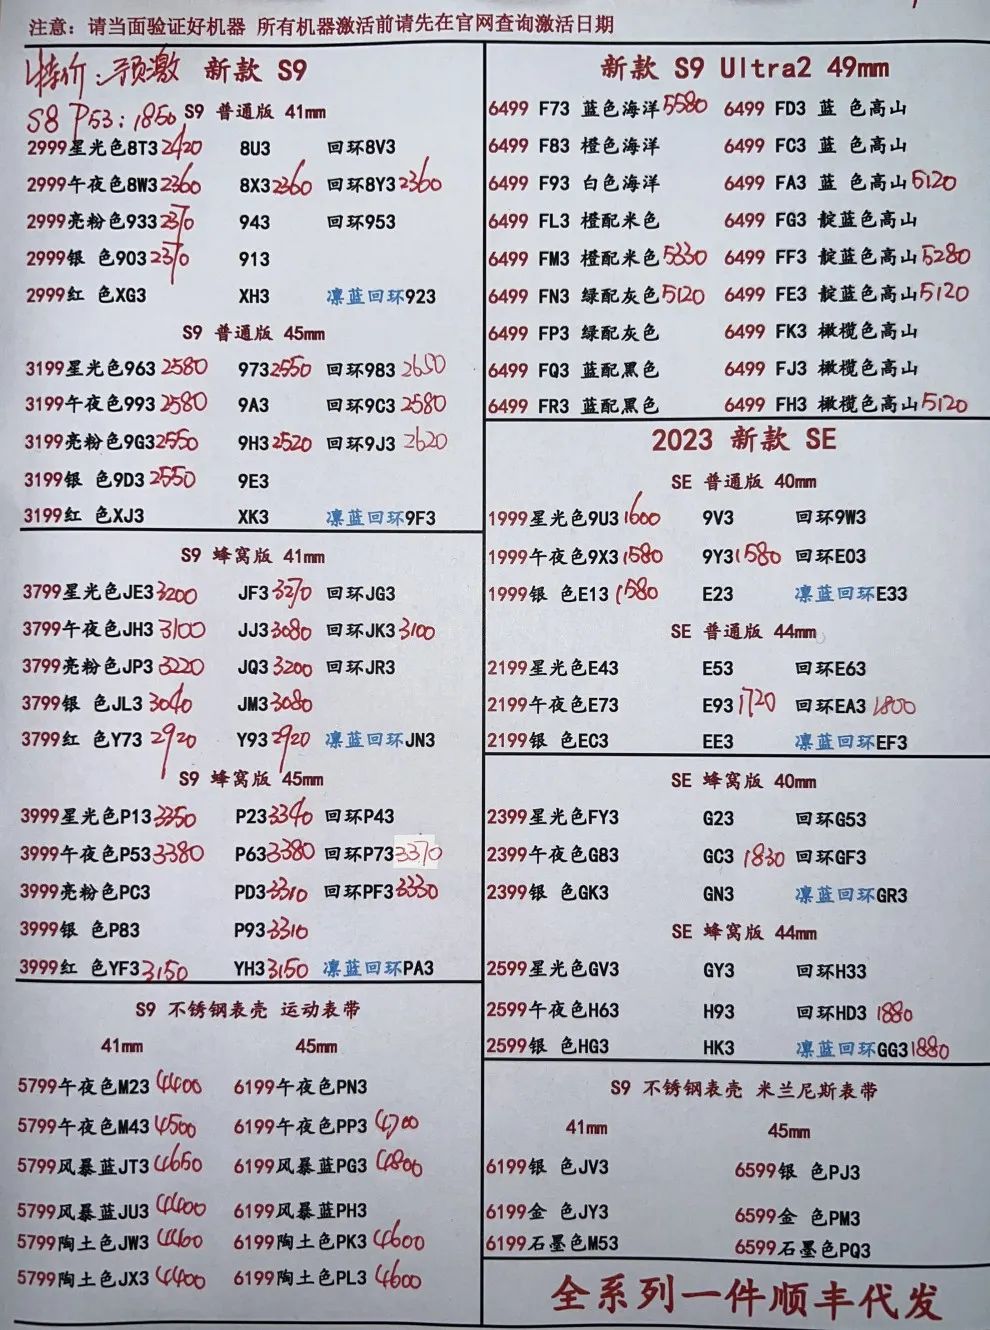 注意：请当面验证好机器 所有机器激活前请先在官网查询激活日期
特价：预激 新款 S9
S8 P53：1850 S9 普通版 41mm
2999星光色8T3 2420 8U3 回环8V3
2999午夜色8W3 2360 8X3 2360 回环8Y3 2360
2999亮粉色933 2370 943 回环953
2999银 色903 2370 913
2999红 色XG3 XH3 凛蓝回环923
S9 普通版 45mm
3199星光色963 2580 973 2550 回环983 2650
3199午夜色993 2580 9A3 回环9C3 2580
3199亮粉色9G3 2550 9H3 2520 回环9J3 2620
3199银 色9D3 2550 9E3
3199红 色XJ3 XK3 凛蓝回环9F3
S9 蜂窝版 41mm
3799星光色JE3 3200 JF3 3270 回环JG3
3799午夜色JH3 3100 JJ3 3080 回环JK3 3100
3799亮粉色JP3 3220 JQ3 3200 回环JR3
3799银 色JL3 3040 JM3 3080
3799红 色Y73 2920 Y93 2920 凛蓝回环JN3
S9 蜂窝版 45mm
3999星光色P13 3350 P23 3340 回环P43
3999午夜色P53 3380 P63 3380 回环P73 3370
3999亮粉色PC3 PD3 3310 回环PF3 3330
3999银 色P83 P93 3310
3999红 色YF3 3150 YH3 3150 凛蓝回环PA3
S9 不锈钢表壳 运动表带
41mm 45mm
5799午夜色M23 4400 6199午夜色PN3
5799午夜色M43 4500 6199午夜色PP3 4700
5799风暴蓝JT3 4650 6199风暴蓝PG3 4800
5799风暴蓝JU3 4400 6199风暴蓝PH3
5799陶土色JW3 4460 6199陶土色PK3 4600
5799陶土色JX3 4400 6199陶土色PL3 4600
新款 S9 Ultra2 49mm
6499 F73 蓝色海洋 5580 6499 FD3 蓝 色高山
6499 F83 橙色海洋 6499 FC3 蓝 色高山
6499 F93 白色海洋 6499 FA3 蓝 色高山 5120
6499 FL3 橙配米色 6499 FG3 靛蓝色高山
6499 FM3 橙配米色 5330 6499 FF3 靛蓝色高山 5280
6499 FN3 绿配灰色 5120 6499 FE3 靛蓝色高山 5120
6499 FP3 绿配灰色 6499 FK3 橄榄色高山
6499 FQ3 蓝配黑色 6499 FJ3 橄榄色高山
6499 FR3 蓝配黑色 6499 FH3 橄榄色高山 5120
2023 新款 SE
SE 普通版 40mm
1999星光色9U3 1600 9V3 回环9W3
1999午夜色9X3 1580 9Y3 1580 回环E03
1999银 色E13 1580 E23 凛蓝回环E33
SE 普通版 44mm
2199星光色E43 E53 回环E63
2199午夜色E73 E93 1720 回环EA3 1800
2199银 色EC3 EE3 凛蓝回环EF3
SE 蜂窝版 40mm
2399星光色FY3 G23 回环G53
2399午夜色G83 GC3 1830 回环GF3
2399银 色GK3 GN3 凛蓝回环GR3
SE 蜂窝版 44mm
2599星光色GV3 GY3 回环H33
2599午夜色H63 H93 回环HD3 1880
2599银 色HG3 HK3 凛蓝回环GG3 1880
S9 不锈钢表壳 米兰尼斯表带
41mm 45mm
6199银 色JV3 6599银 色PJ3
6199金 色JY3 6599金 色PM3
6199石墨色M53 6599石墨色PQ3
全系列一件顺丰代发